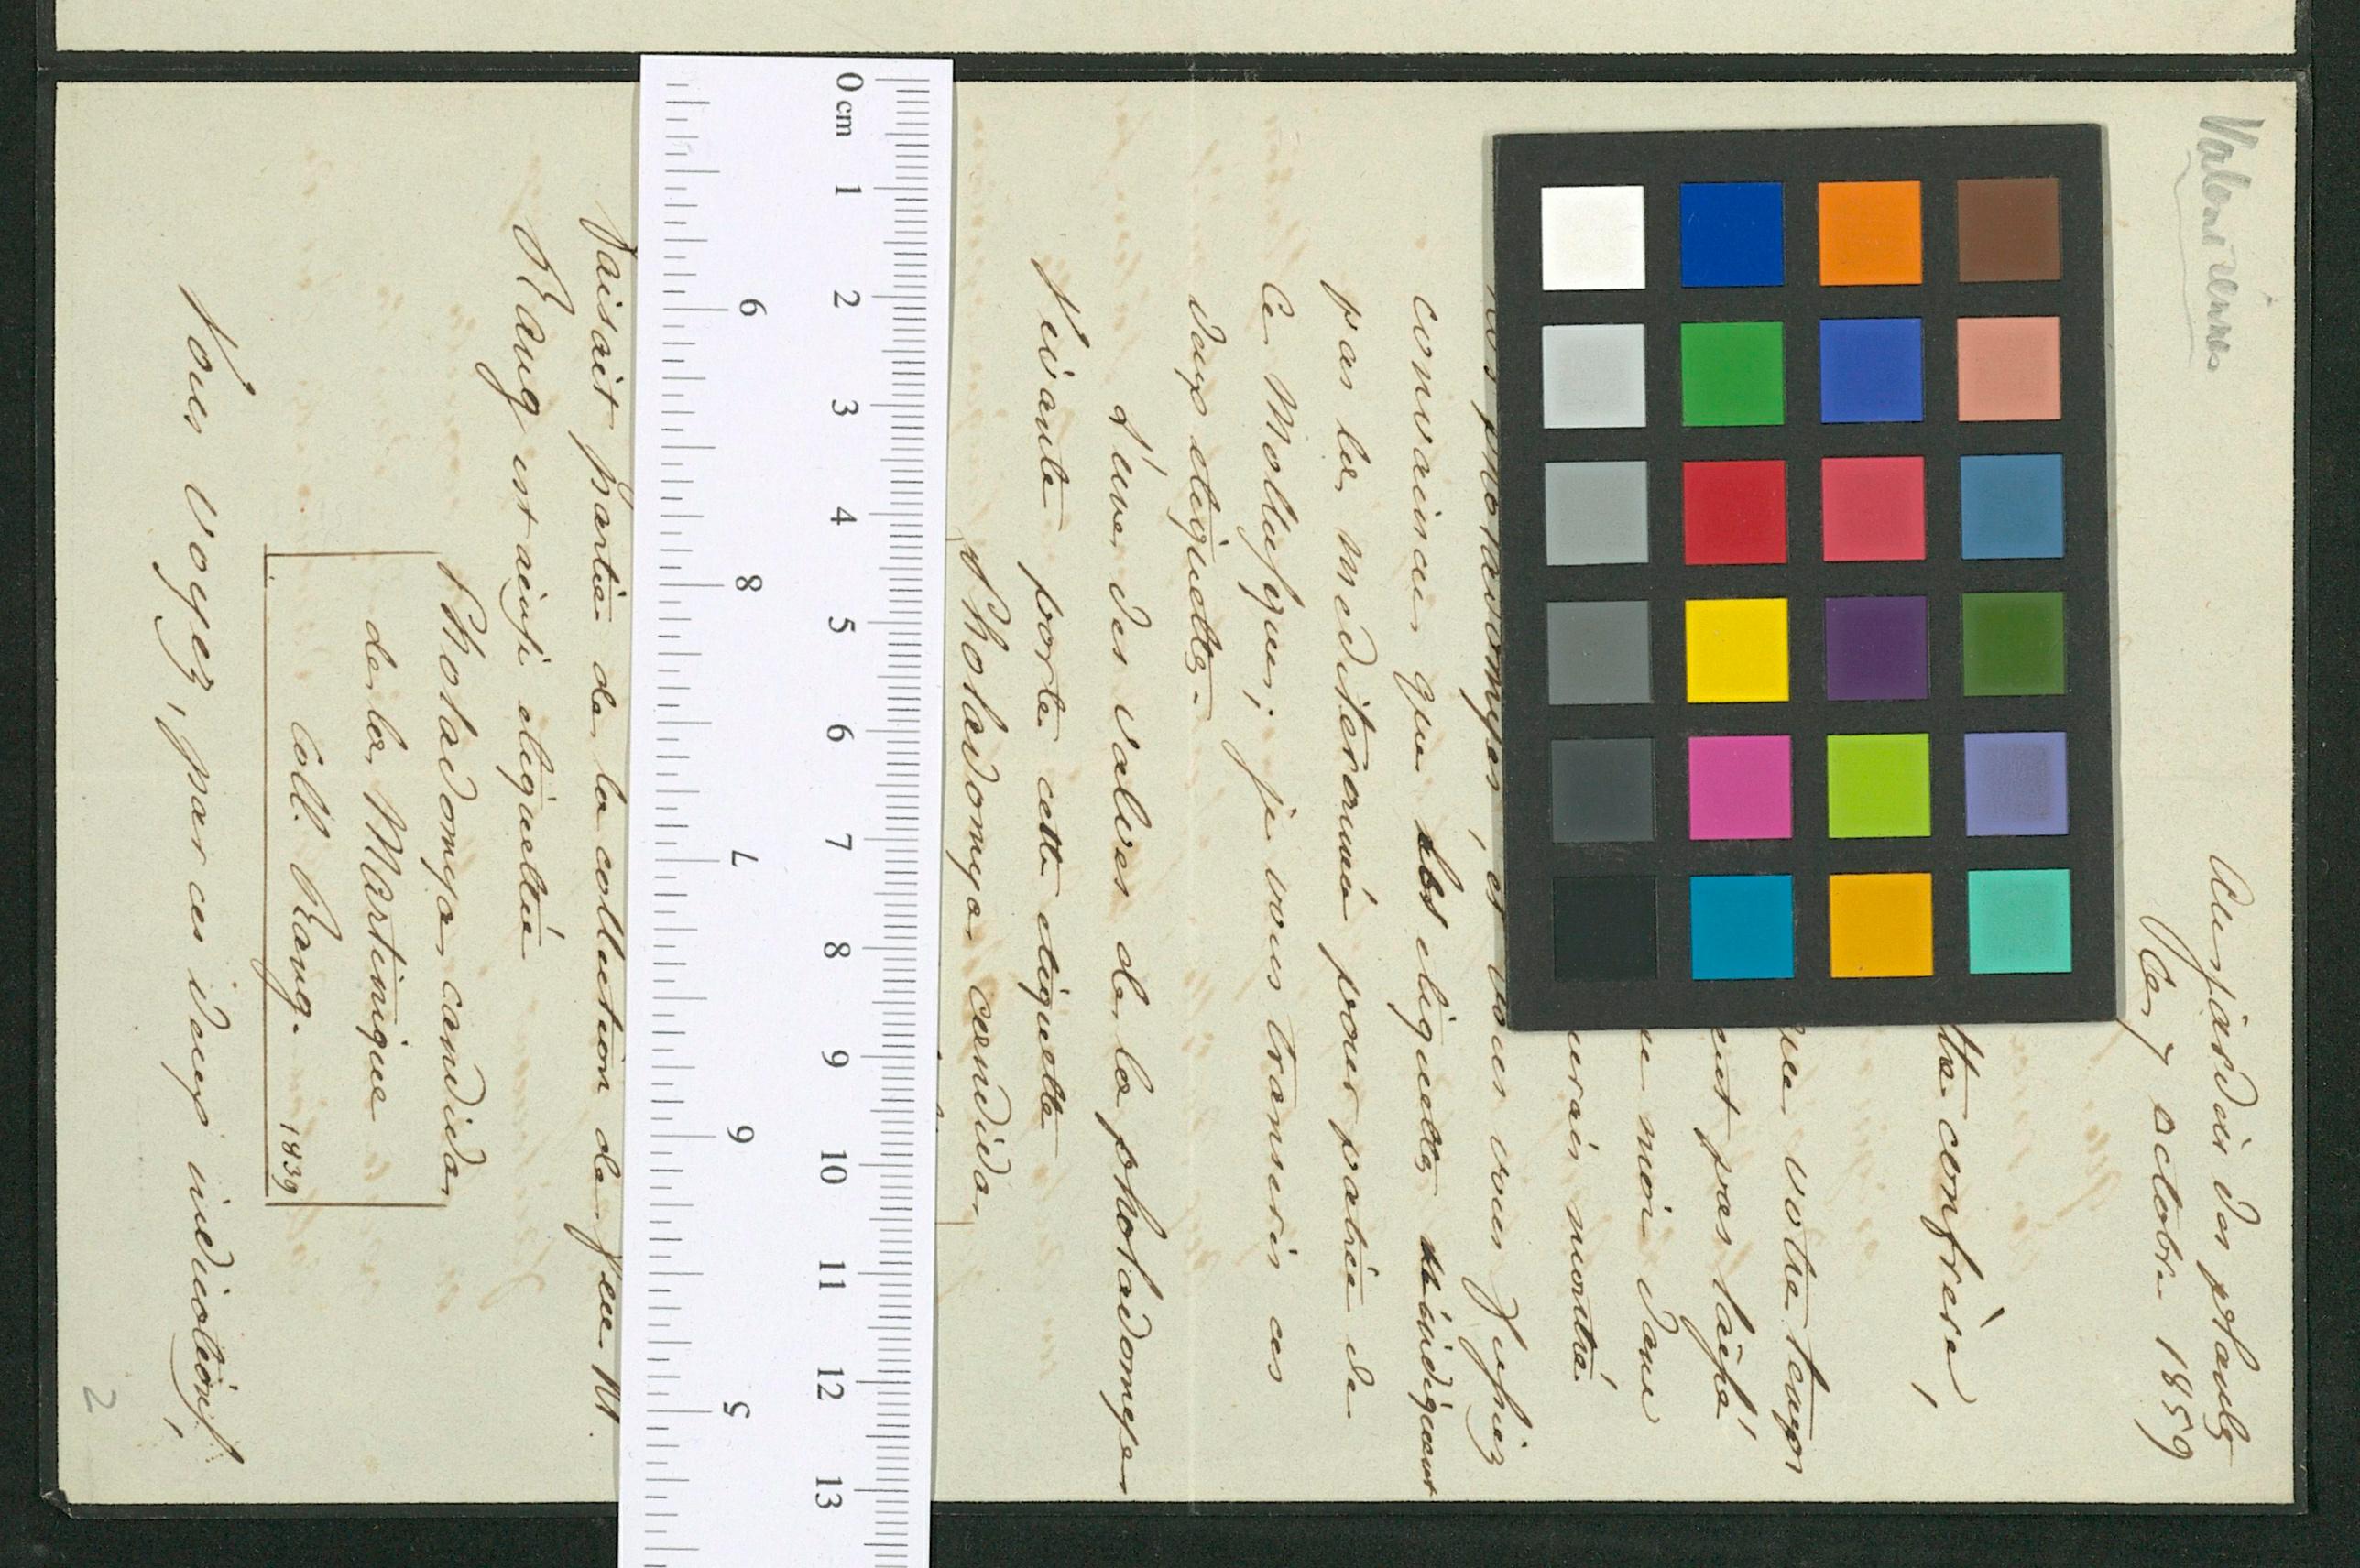 Valenciennes
Au jardin des plantes
Ce 7 octobre 1859
confrère,
votre temps
pas laissé
moi dans
montré
les pholadomyes, et vous vous fussiez
convaincu que les étiquettes n'indiquent
pas la méditerannée pour patrie de
ce Mollusque; je vous transcris ces
deux étiquettes.
L'une des valves de la pholadomye
vivante porte cette étiquette
Pholadomya candida
faisait partie de la collection de feu M.
Rang est ainsi étiquettée
Pholadomya candida
de la Martinique
Coll. Rang. 1839
Vous voyez, par ces deux indications,
2
0 cm 1 2 3 4 5 6 7 8 9 10 11 12 13
9 8 7 6 5